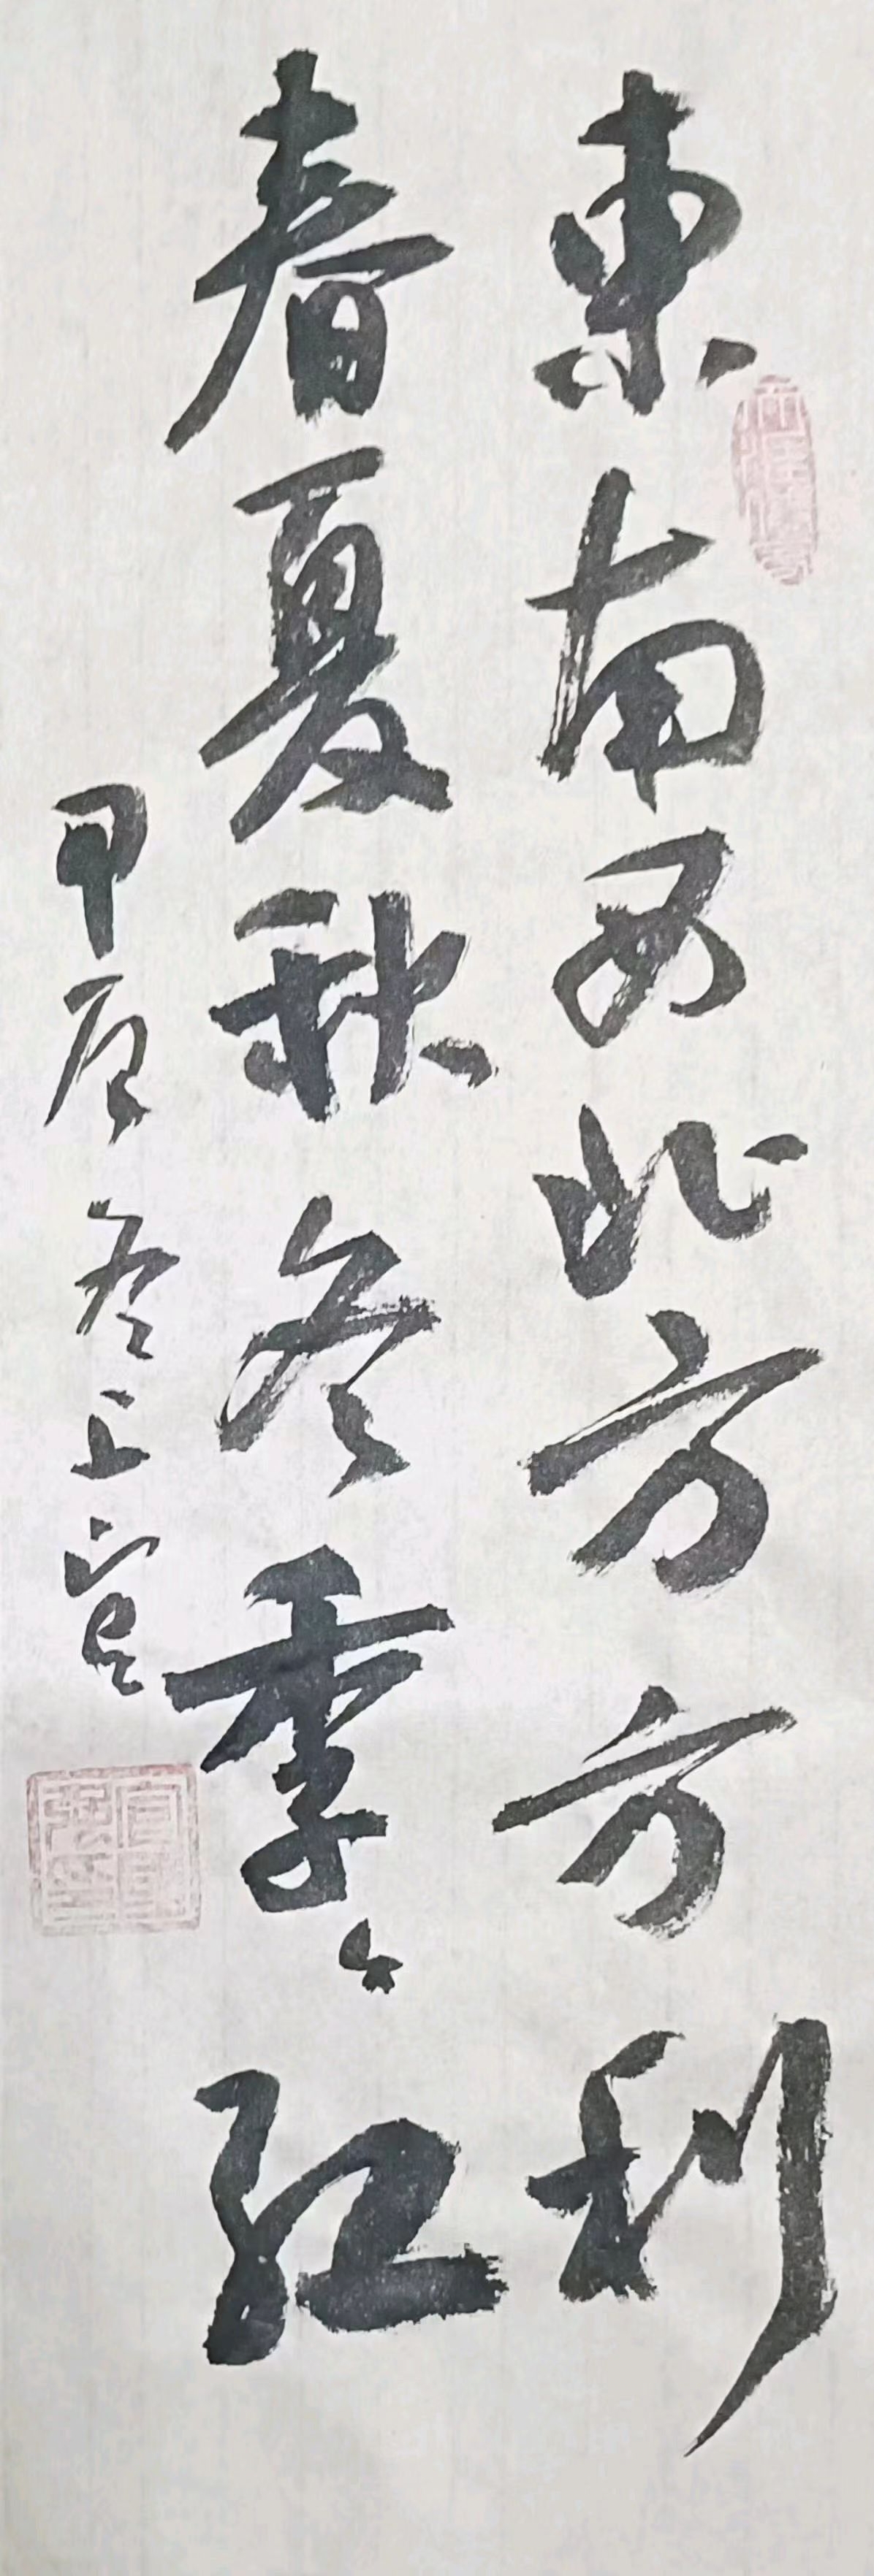 東南西北方方利
春夏秋冬季々紅
甲辰冬上官